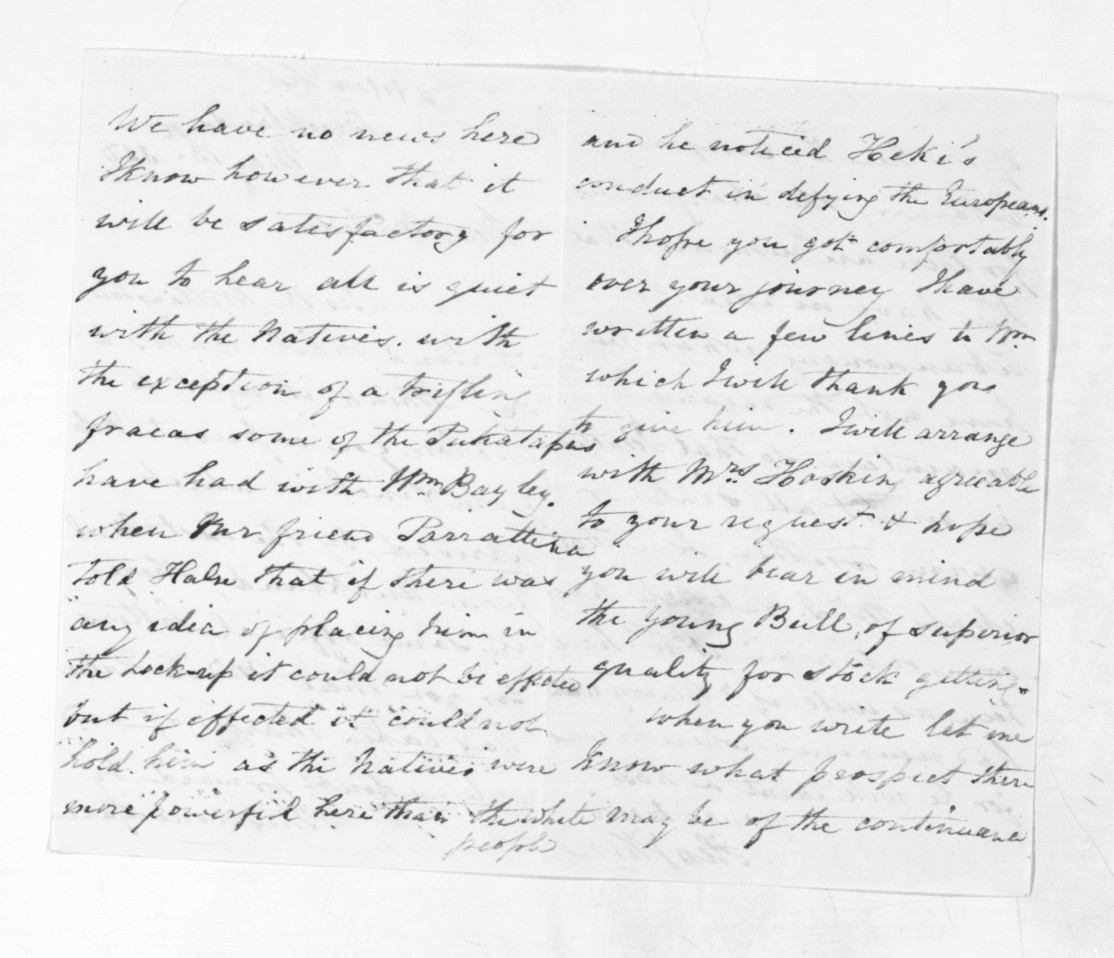 We have no news here
I know however that it
will be satisfactory for
you to hear all is quiet
with the Natives. with
the exception of a trifling
fracas some of the Pukatapus
have had with Wm Bayley.
when our friend Parrattina
told Halse that if there was
any idea of placing him in
the Lock-up it could not be effected
but if effected it could not
hold him as the Natives were
more powerful here than the white
people
and he noticed Heki's
conduct in defying the Europeans.
I hope you got comfortably
over your journey I have
written a few lines to Wm
which I will thank you
to give him. I will arrange
with Mrs. Hoskin agreeable
to your request & hope
you will bear in mind
the young Bull, of superior
quality for stock getting.
when you write let me
know what prospect there
may be of the continuance